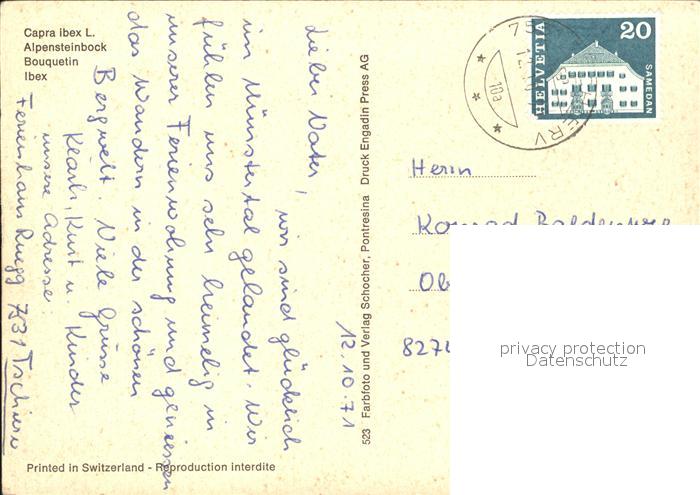 Capra ibex L.
Alpensteinbock
Bouquetin
Ibex
12.10.71
Lieber Vater,
wir sind glücklich
im Münstertal gelandet. Wir
fühlen uns sehr heimelig in
unserer Ferienwohnung und geniessen
das Wandern in der schönen
Bergwelt. Viele Grüsse
Kearli, Kurt u. Kinder
unsere Adresse:
Ferienhaus Ruegg 7531 Tschierv
Printed in Switzerland - Reproduction interdite
523 Farbfoto und Verlag Schocher, Pontresina Druck Engadin Press AG
HELVETIA
20
SAMEDAN
75
10a
ERV
Herrn
Konrad
Ob
827
privacy protection
Datenschutz